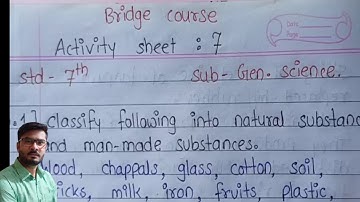 Bridge course
Date
Page
Activity sheet : 7
std - 7th sub - Gen. science.
.1] classify following into natural substanc
nd man-made substances.
wood, chappals, glass, cotton, soil,
icks, milk, iron, fruits, plastic,